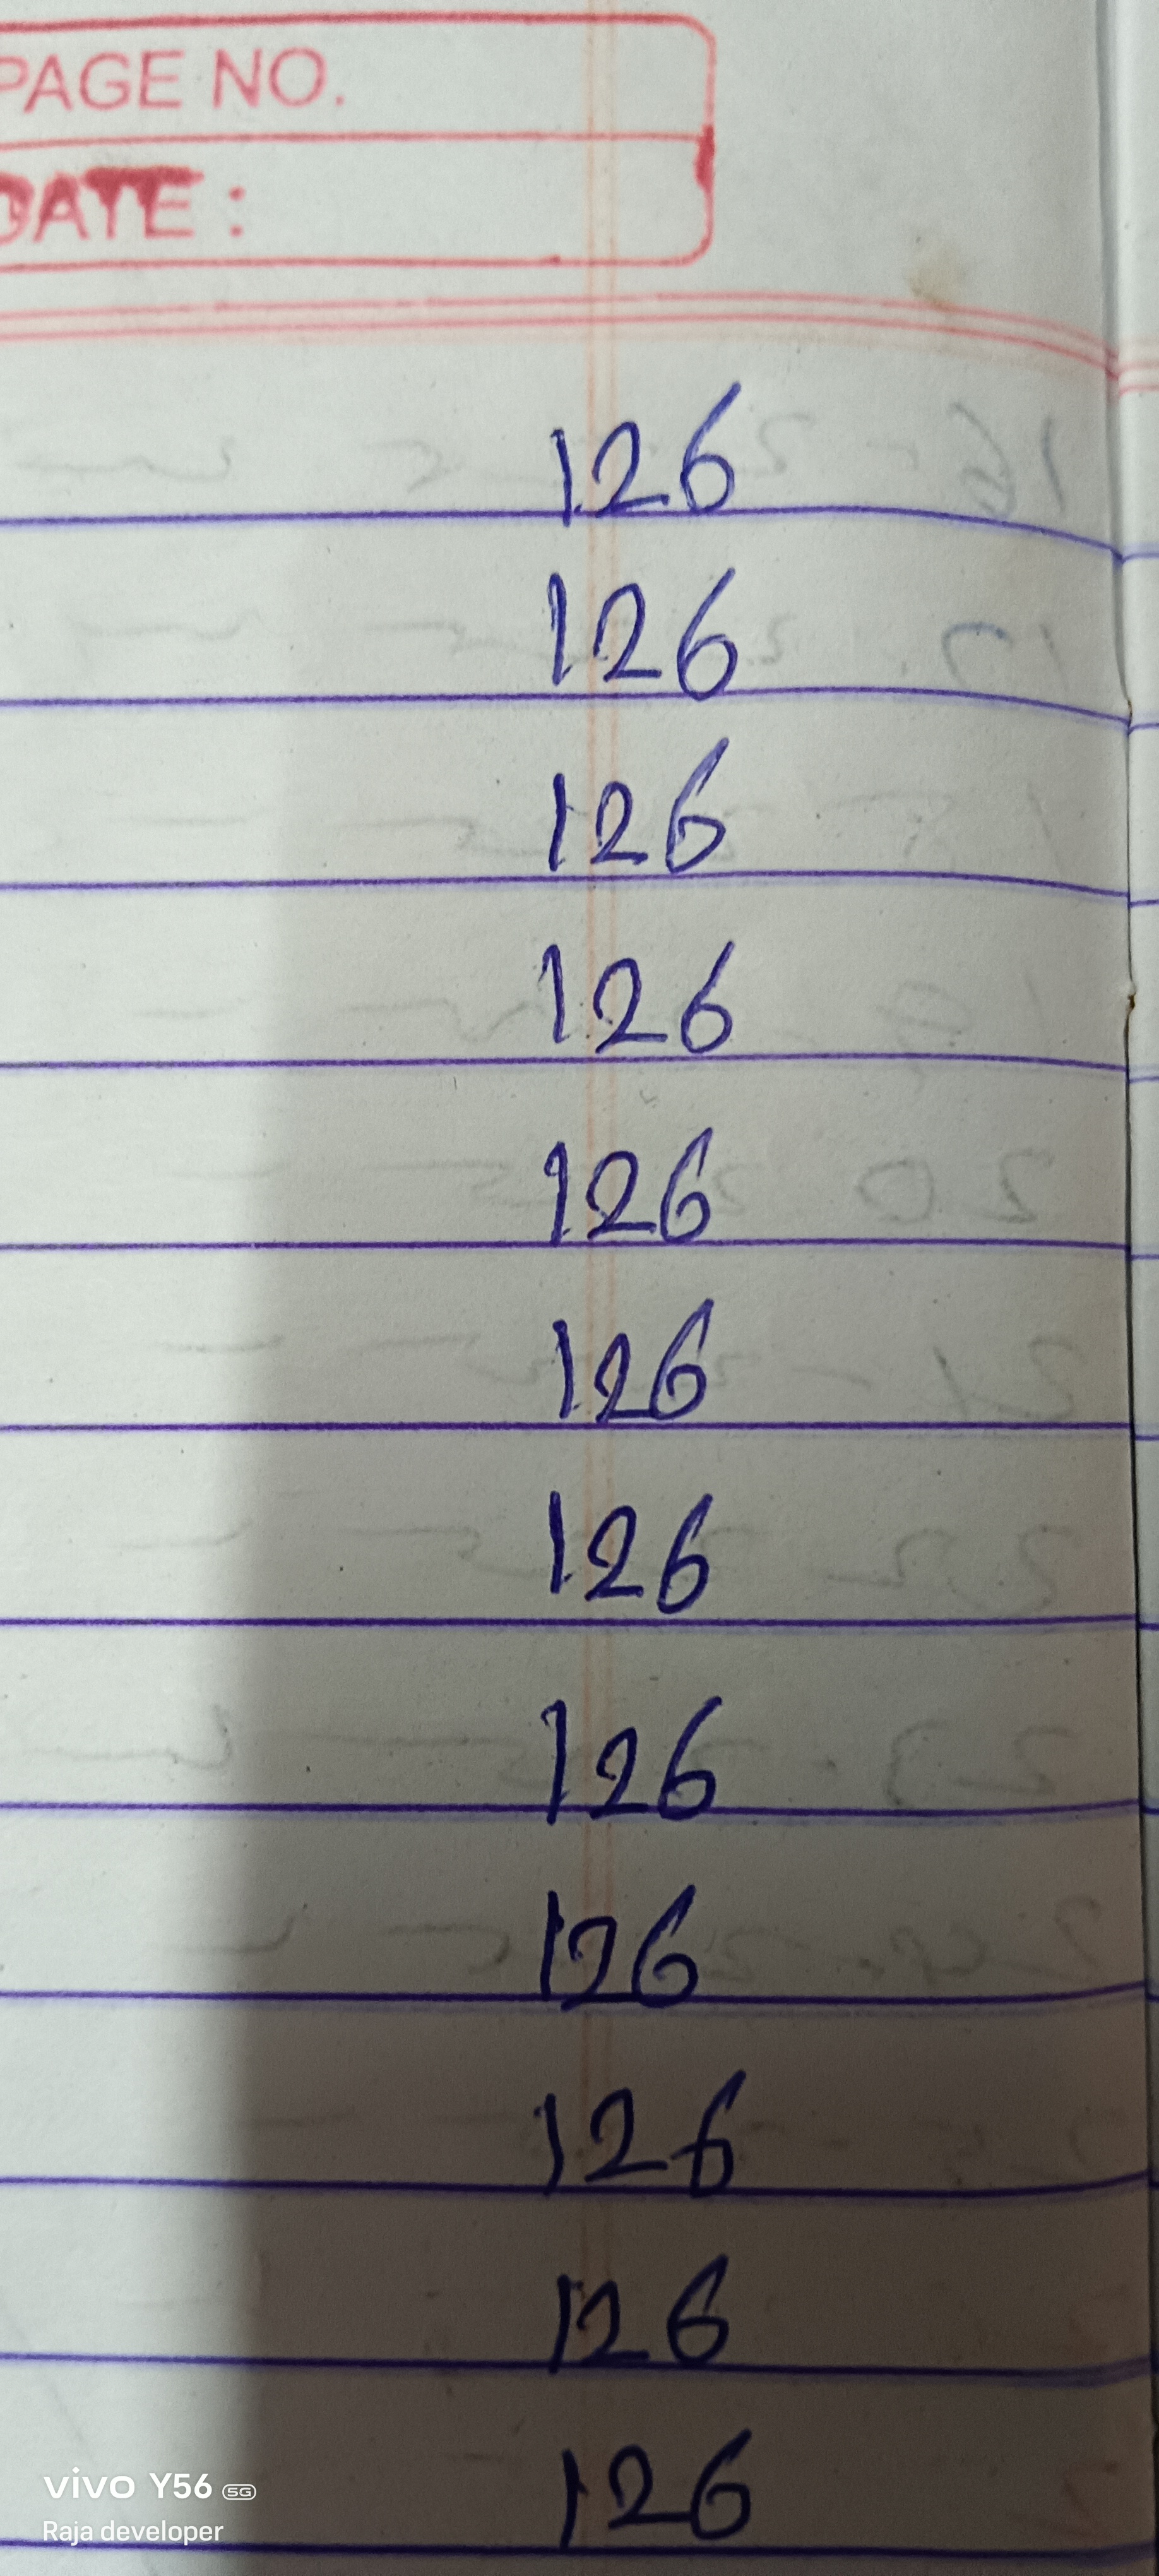 PAGE NO.
DATE :
126
126
126
126
126
126
126
126
126
126
126
126
vivo Y56 5G
Raja developer